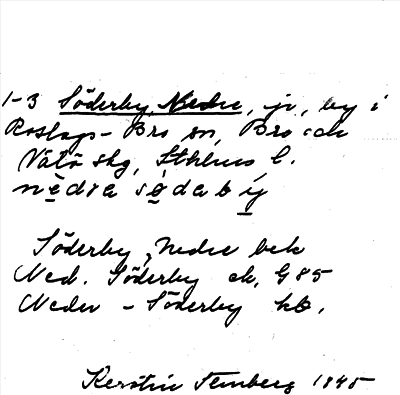 1-3 Söderby, Nedre, jr, by i
Roslags-Bro sn, Bro och
Vätö skg, Sthlms l.
nèdra södab ý
Söderby, Nedre bek
Ned. Söderby ek, G85
Neder - Söderby kb.
Kerstin Ternberg 1945